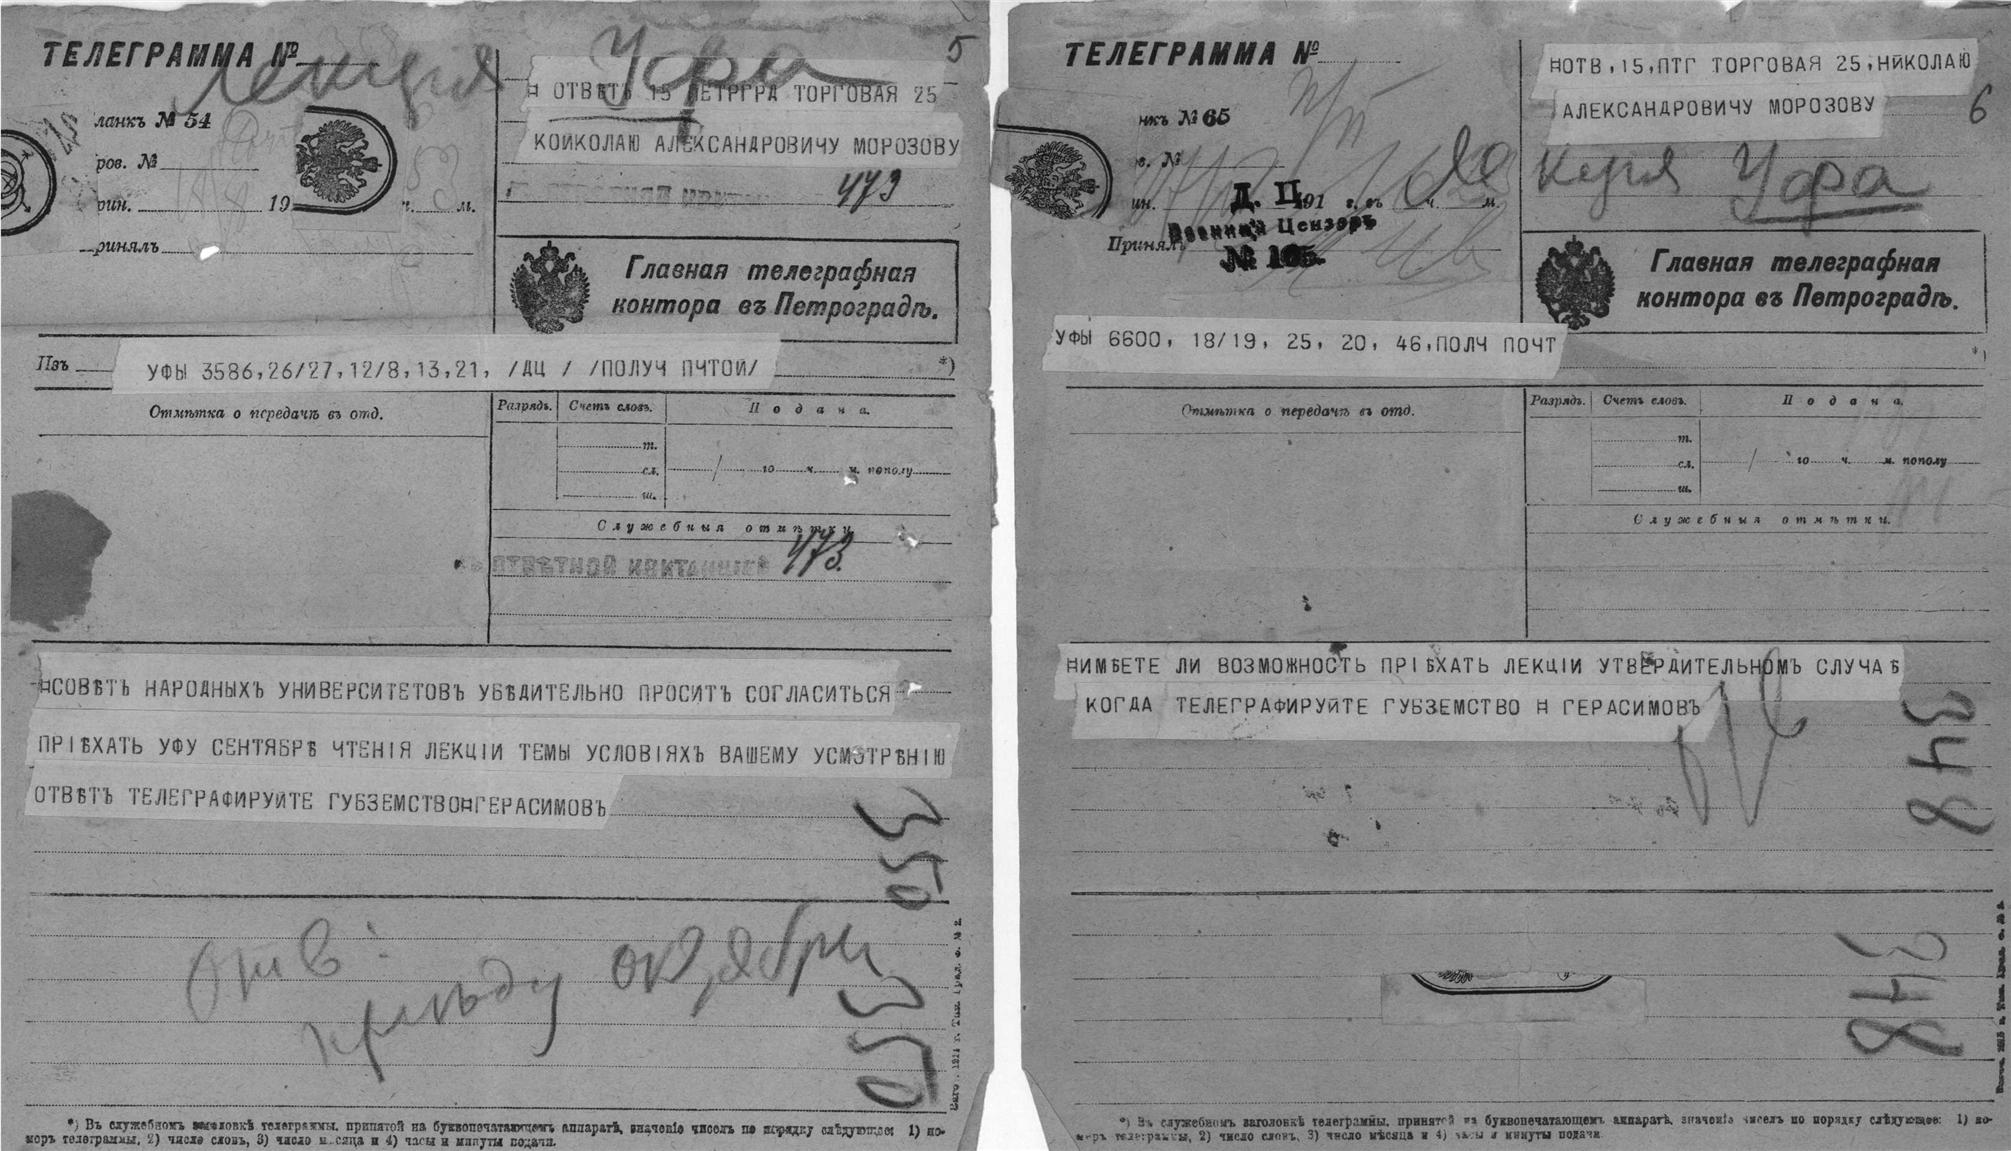 ТЕЛЕГРАММА №
Лекція Уфа
5
Н ОТВѢТЬ 15 ПЕТРГРД ТОРГОВАЯ 25
КОЙКОЛАЮ АЛЕКСАНДРОВИЧУ МОРОЗОВУ
473
ланкъ № 54
ров. №
рин. 19 ч. м.
ринялъ
Главная телеграфная
контора въ Петроградѣ.
Изъ УФЫ 3586,26/27,12/8,13,21, /ДЦ / /ПОЛУЧ ПЧТОЙ/ *)
Отмѣтка о передачѣ въ отд.
Разрядъ. Счетъ словъ. Подана.
т.
сл. / го ч. м. пополу
ш.
Служебныя отмѣтки.
ОТВѢТНОЙ КВИТАНЦІЕЙ 473.
НСОВѢТЬ НАРОДНЫХЪ УНИВЕРСИТЕТОВЪ УБѢДИТЕЛЬНО ПРОСИТЬ СОГЛАСИТЬСЯ
ПРІѢХАТЬ УФУ СЕНТЯБРѢ ЧТЕНІЯ ЛЕКЦІИ ТЕМЫ УСЛОВІЯХЪ ВАШЕМУ УСМОТРѢНІЮ
ОТВѢТЬ ТЕЛЕГРАФИРУЙТЕ ГУБЗЕМСТВОНГЕРАСИМОВЪ
350
Отв:
пріѣду октябри
350
*) Въ служебномъ заголовкѣ телеграммы, принятой на буквопечатающемъ аппаратѣ, значеніе чиселъ по порядку слѣдующее: 1) но-
меръ телеграммы, 2) число словъ, 3) число мѣсяца и 4) часы и минуты подачи.
ТЕЛЕГРАММА №
НОТВ,15,ПТГ ТОРГОВАЯ 25,НИКОЛАЮ
АЛЕКСАНДРОВИЧУ МОРОЗОВУ
6
нкъ № 65
в. №
Лекція Уфа
ин. Д. Ц. 191 г. въ ч. м.
Военный Цензоръ
Принялъ № 105.
Главная телеграфная
контора въ Петроградѣ.
УФЫ 6600, 18/19, 25, 20, 46,ПОЛЧ ПОЧТ
*)
Отмѣтка о передачѣ въ отд.
Разрядъ. Счетъ словъ. Подана.
т.
сл. / го ч. м. пополу
ш.
Служебныя отмѣтки.
НИМѢЕТЕ ЛИ ВОЗМОЖНОСТЬ ПРІѢХАТЬ ЛЕКЦІИ УТВЕРДИТЕЛЬНОМЪ СЛУЧАѢ
КОГДА ТЕЛЕГРАФИРУЙТЕ ГУБЗЕМСТВО Н ГЕРАСИМОВЪ
348
348
*) Въ служебномъ заголовкѣ телеграммы, принятой на буквопечатающемъ аппаратѣ, значеніе чиселъ по порядку слѣдующее: 1) но-
меръ телеграммы, 2) число словъ, 3) число мѣсяца и 4) часы и минуты подачи.